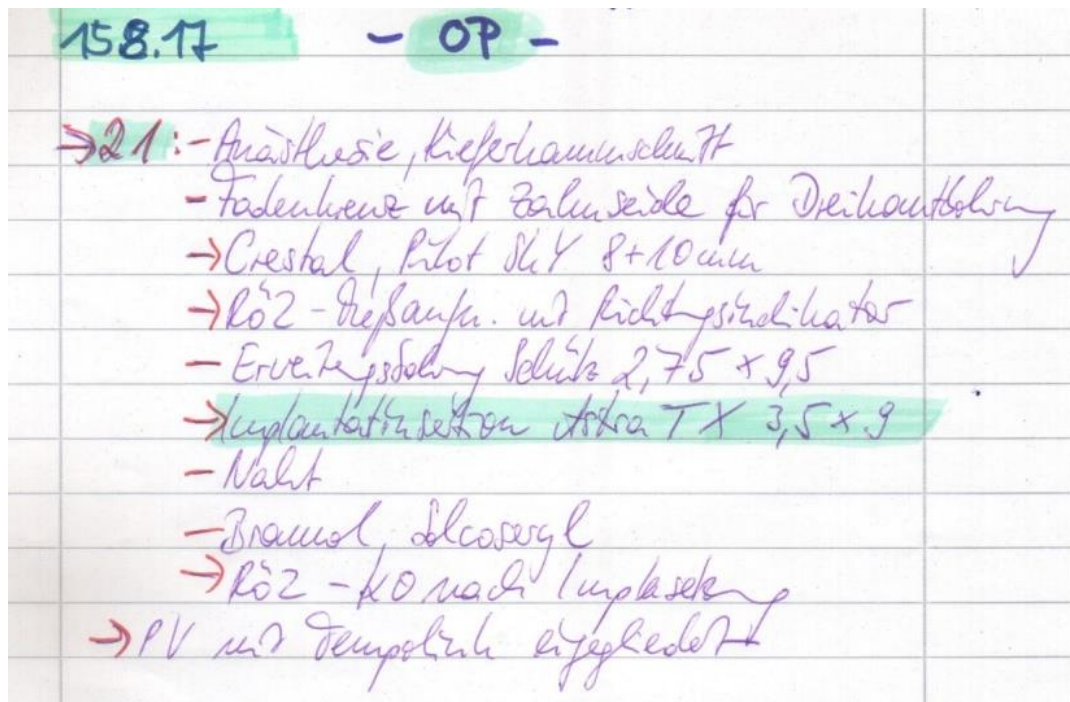 15.8.17 - OP -
→ 21: - Anästhesie, Kieferkammschnitt
- Fadenkreuz mit Zahnseide für Dreikantbohrung
→ Crestal, Pilot SKY 8+10mm
→ Rö2 - Meßaufn. mit Richtungsindikator
- Erweiterungsbohrung Schütz 2,75 x 9,5
→ Implantatinsertion Astra TX 3,5 x 9
- Naht
- Solcoseryl
→ Rö2 - KO nach Implasetzung
→ PV mit Tempolink eingegliedert